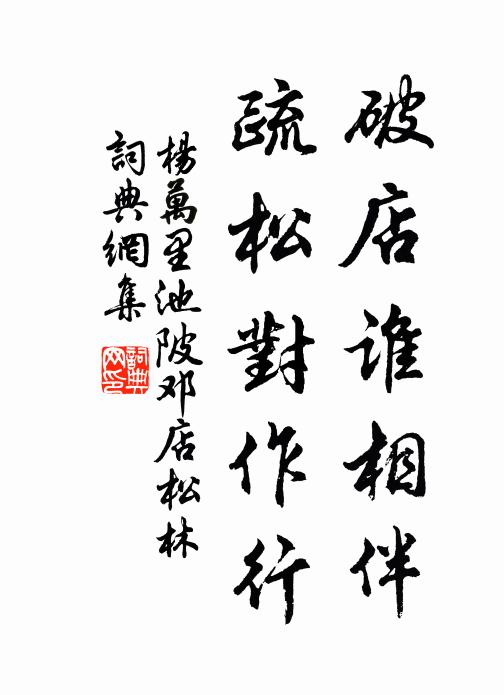 破店誰相伴
疏松對作行
楊萬里池陂邓店松林
詞典網集
詞典網印